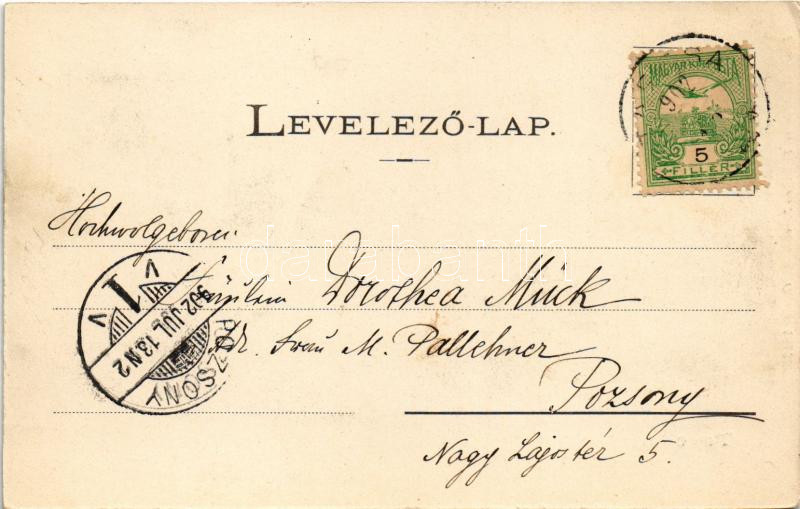 LEVELEZŐ-LAP.
MAGYAR KIR. POSTA
902
5
FILLÉR
Hochwolgeboren
Fräulein Dorothea Muck
Adr. Frau M. Pallehner
Pozsony
Nagy Lajos tér 5.
V 1 V
902 JUL 13 N 2
POZSONY
darabanth